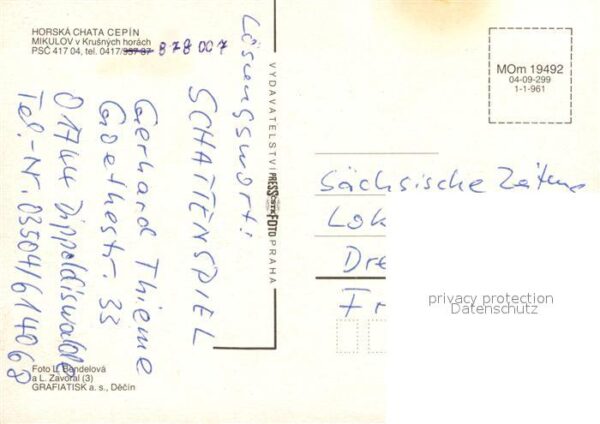 HORSKÁ CHATA CEPÍN
MIKULOV v Krušných horách
PSČ 417 04, tel. 0417/957 37 878 007
Lösungswort:
SCHATTENSPIEL
Gerhard Thieme
Goethestr. 33
01744 Dippoldiswalde
Tel.-Nr. 03504/614068
VYDAVATELSTVÍ PRESSFOTO PRAHA
MOm 19492
04-09-299
1-1-961
Sächsische Zeitung
Lok
Dre
Fr
privacy protection
Datenschutz
Foto L. Bendelová
a L. Zavoral (3)
GRAFIATISK a. s., Děčín